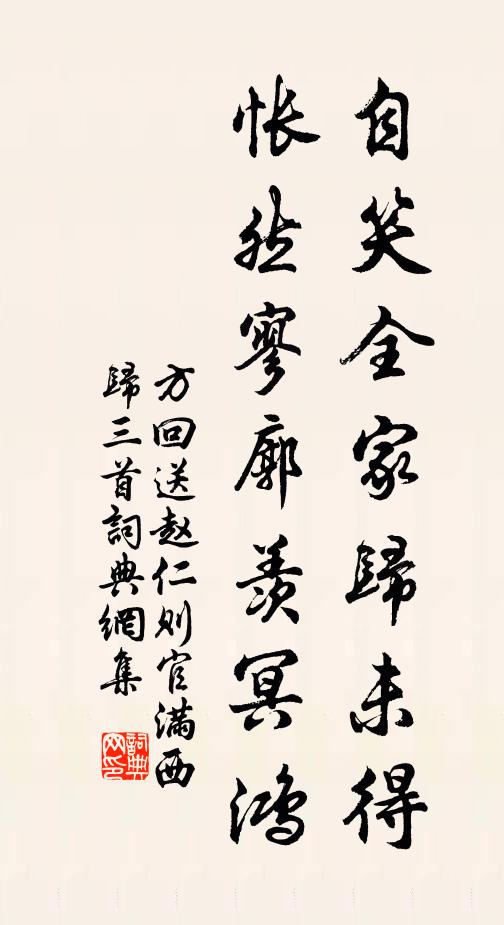 自笑全家歸未得
怅然寥廓羨冥鴻
方回送赵仁则官满西
歸三首詞典網集
詞典
网印